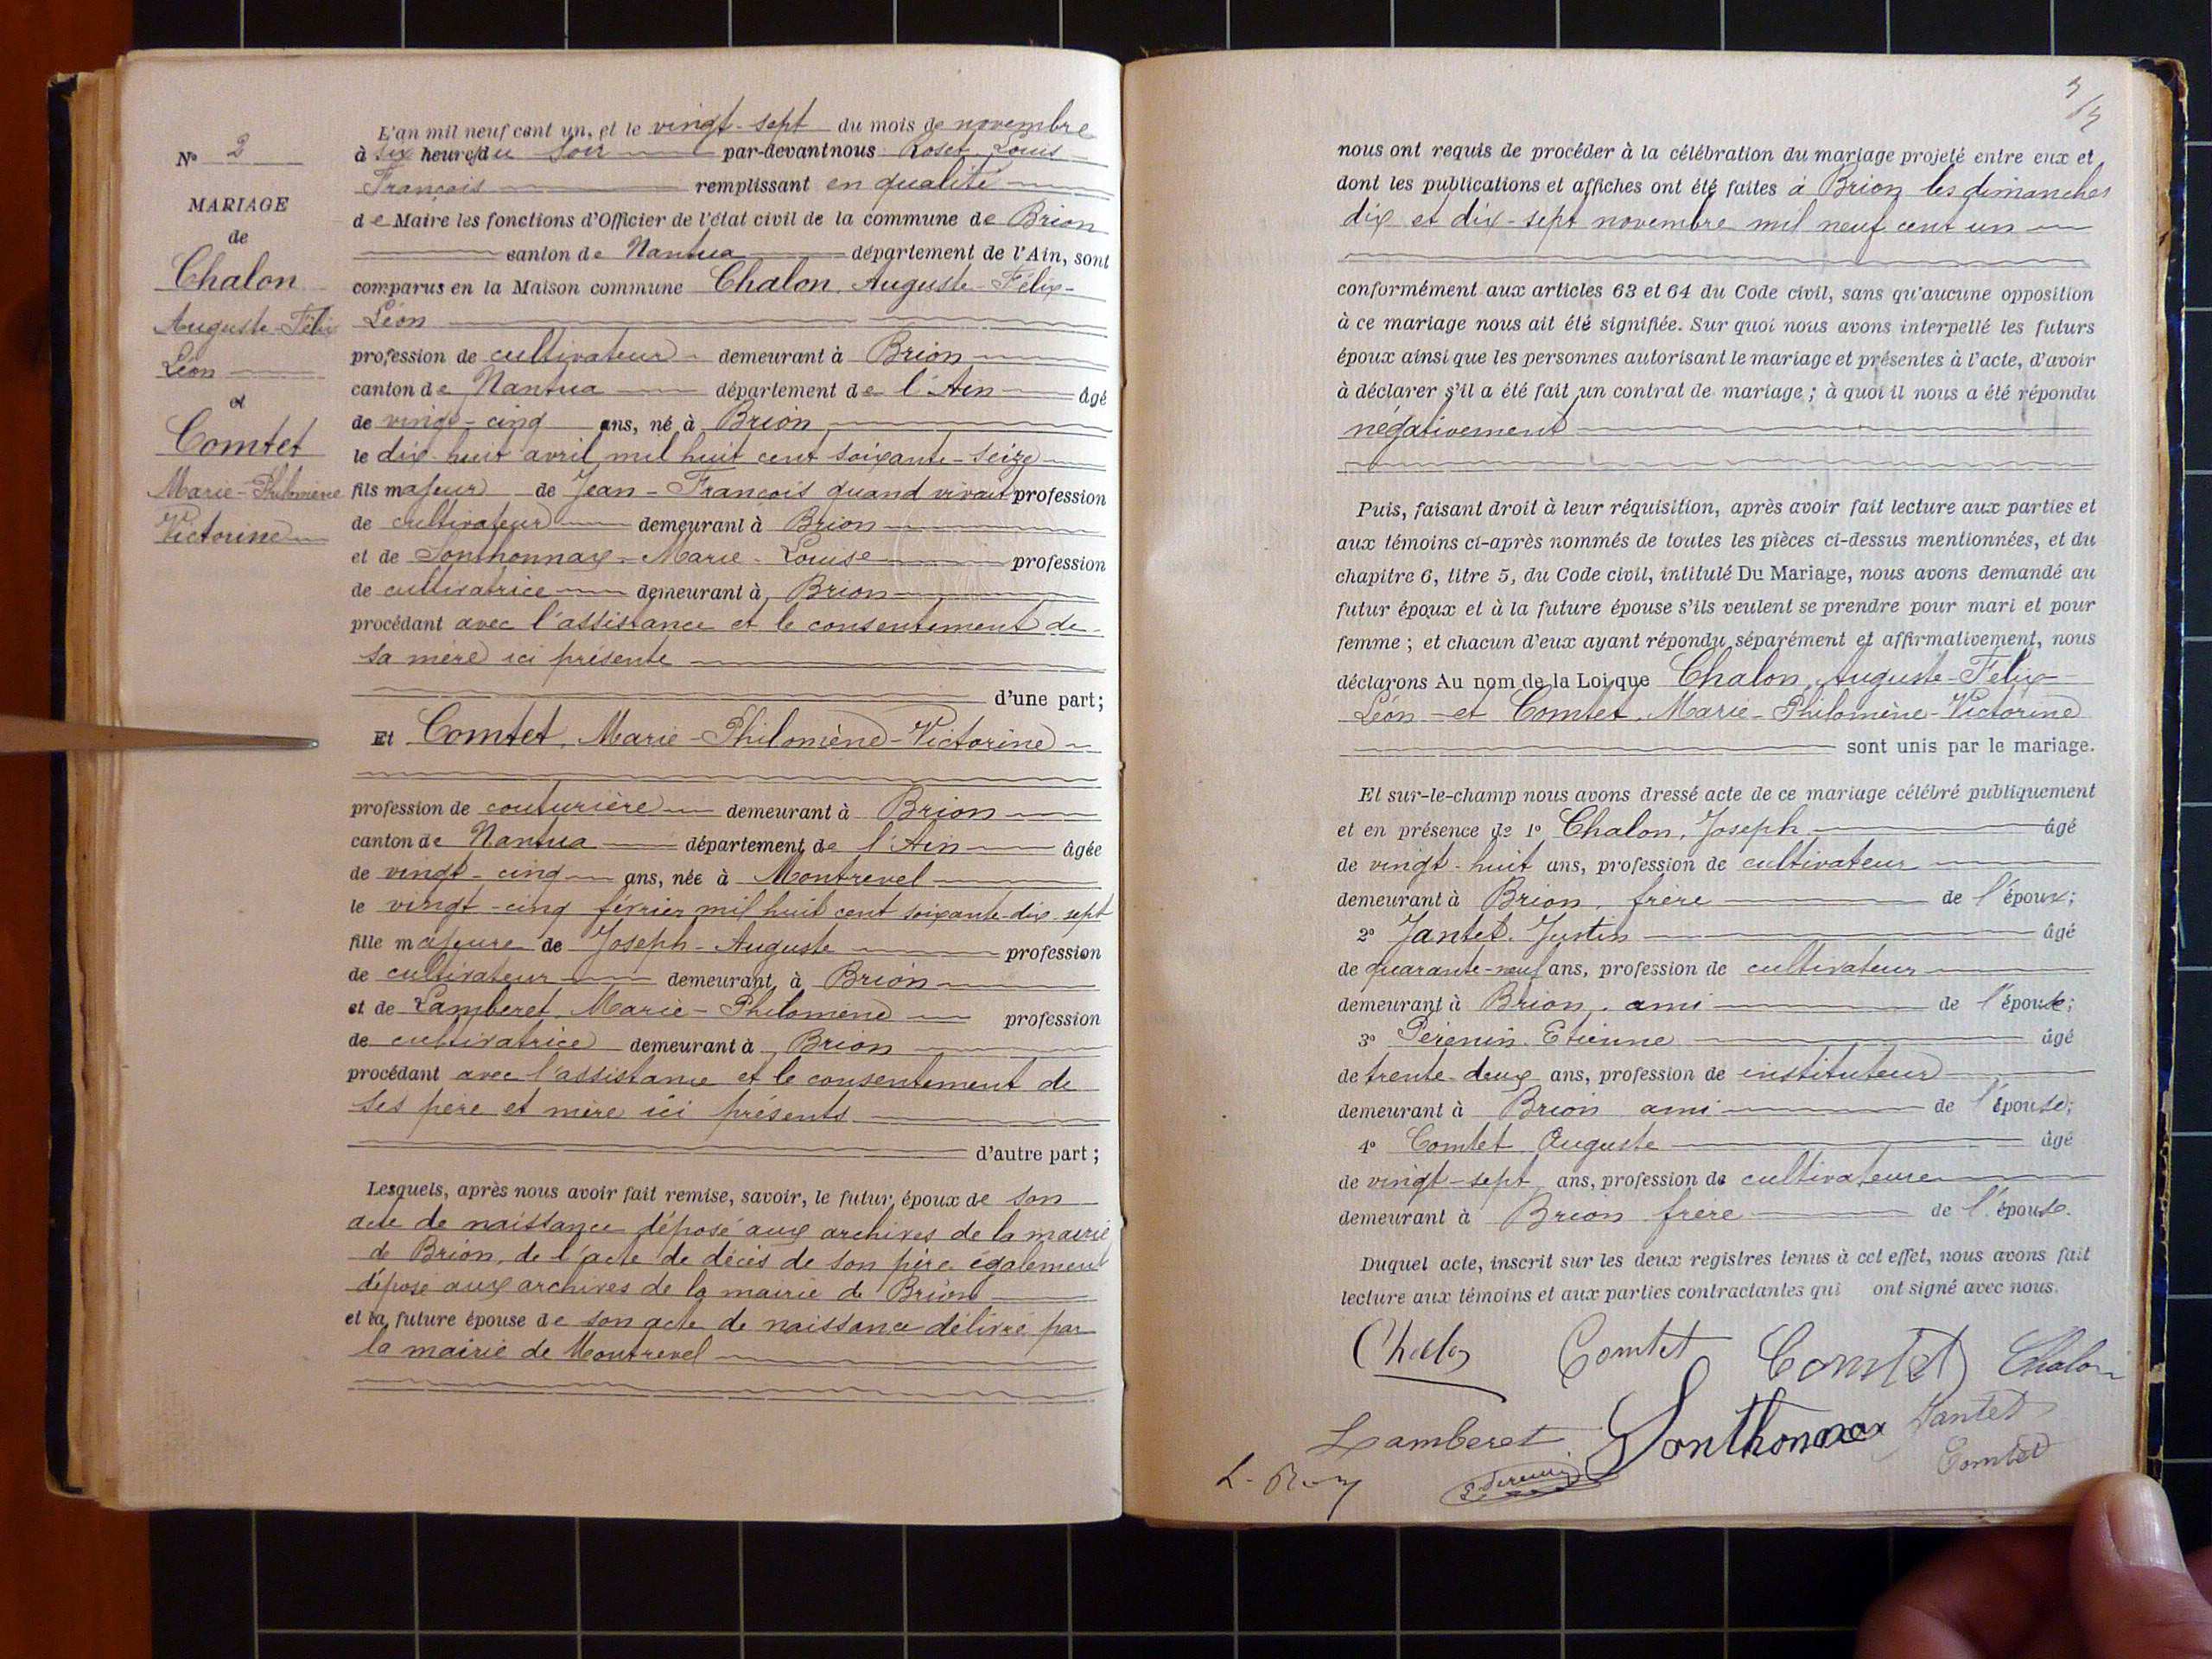 N° 2
MARIAGE
de
Chalon
Auguste-Félix
Léon
et
Comtet
Marie-Philomène
Victorine
L'an mil neuf cent un, et le vingt-sept du mois de novembre
à six heures du soir par-devant nous Roset Louis
François remplissant en qualité
de Maire les fonctions d'Officier de l'état civil de la commune de Brion
canton de Nantua département de l'Ain, sont
comparus en la Maison commune Chalon, Auguste-Félix-
Léon
profession de cultivateur demeurant à Brion
canton de Nantua département de l'Ain âgé
de vingt-cinq ans, né à Brion
le dix-huit avril mil huit cent soixante-seize
fils majeur de Jean-François quand vivait profession
de cultivateur demeurant à Brion
et de Sonthonnax-Marie-Louise profession
de cultivatrice demeurant à Brion
procédant avec l'assistance et le consentement de
sa mère ici présente
d'une part;
Et Comtet, Marie-Philomène-Victorine
profession de couturière demeurant à Brion
canton de Nantua département de l'Ain âgée
de vingt-cinq ans, née à Montrevel
le vingt-cinq février mil huit cent soixante-dix-sept
fille majeure de Joseph-Auguste profession
de cultivateur demeurant à Brion
et de Lamberet, Marie-Philomène profession
de cultivatrice demeurant à Brion
procédant avec l'assistance et le consentement de
ses père et mère ici présents
d'autre part;
Lesquels, après nous avoir fait remise, savoir, le futur époux de son
acte de naissance déposé aux archives de la mairie
de Brion, de l'acte de décès de son père également
déposé aux archives de la mairie de Brion
et la future épouse de son acte de naissance délivré par
la mairie de Montrevel
nous ont requis de procéder à la célébration du mariage projeté entre eux et
dont les publications et affiches ont été faites à Brion les dimanches
dix et dix-sept novembre mil neuf cent un
conformément aux articles 63 et 64 du Code civil, sans qu'aucune opposition
à ce mariage nous ait été signifiée. Sur quoi nous avons interpellé les futurs
époux ainsi que les personnes autorisant le mariage et présentes à l'acte, d'avoir
à déclarer s'il a été fait un contrat de mariage; à quoi il nous a été répondu
négativement
Puis, faisant droit à leur réquisition, après avoir fait lecture aux parties et
aux témoins ci-après nommés de toutes les pièces ci-dessus mentionnées, et du
chapitre 6, titre 5, du Code civil, intitulé Du Mariage, nous avons demandé au
futur époux et à la future épouse s'ils veulent se prendre pour mari et pour
femme; et chacun d'eux ayant répondu séparément et affirmativement, nous
déclarons Au nom de la Loi que Chalon, Auguste-Félix-
Léon et Comtet, Marie-Philomène-Victorine
sont unis par le mariage.
Et sur-le-champ nous avons dressé acte de ce mariage célébré publiquement
et en présence de 1° Chalon, Joseph âgé
de vingt-huit ans, profession de cultivateur
demeurant à Brion, frère de l'époux;
2° Jantet, Justin âgé
de quarante-neuf ans, profession de cultivateur
demeurant à Brion, ami de l'épouse;
3° Perenin Etienne âgé
de trente-deux ans, profession de instituteur
demeurant à Brion ami de l'épouse;
4° Comtet Auguste âgé
de vingt-sept ans, profession de cultivateur
demeurant à Brion frère de l'épouse.
Duquel acte, inscrit sur les deux registres tenus à cet effet, nous avons fait
lecture aux témoins et aux parties contractantes qui ont signé avec nous.
Chalon Comtet Comtet Chalon
Lamberet Sonthonnax Jantet
Comtet